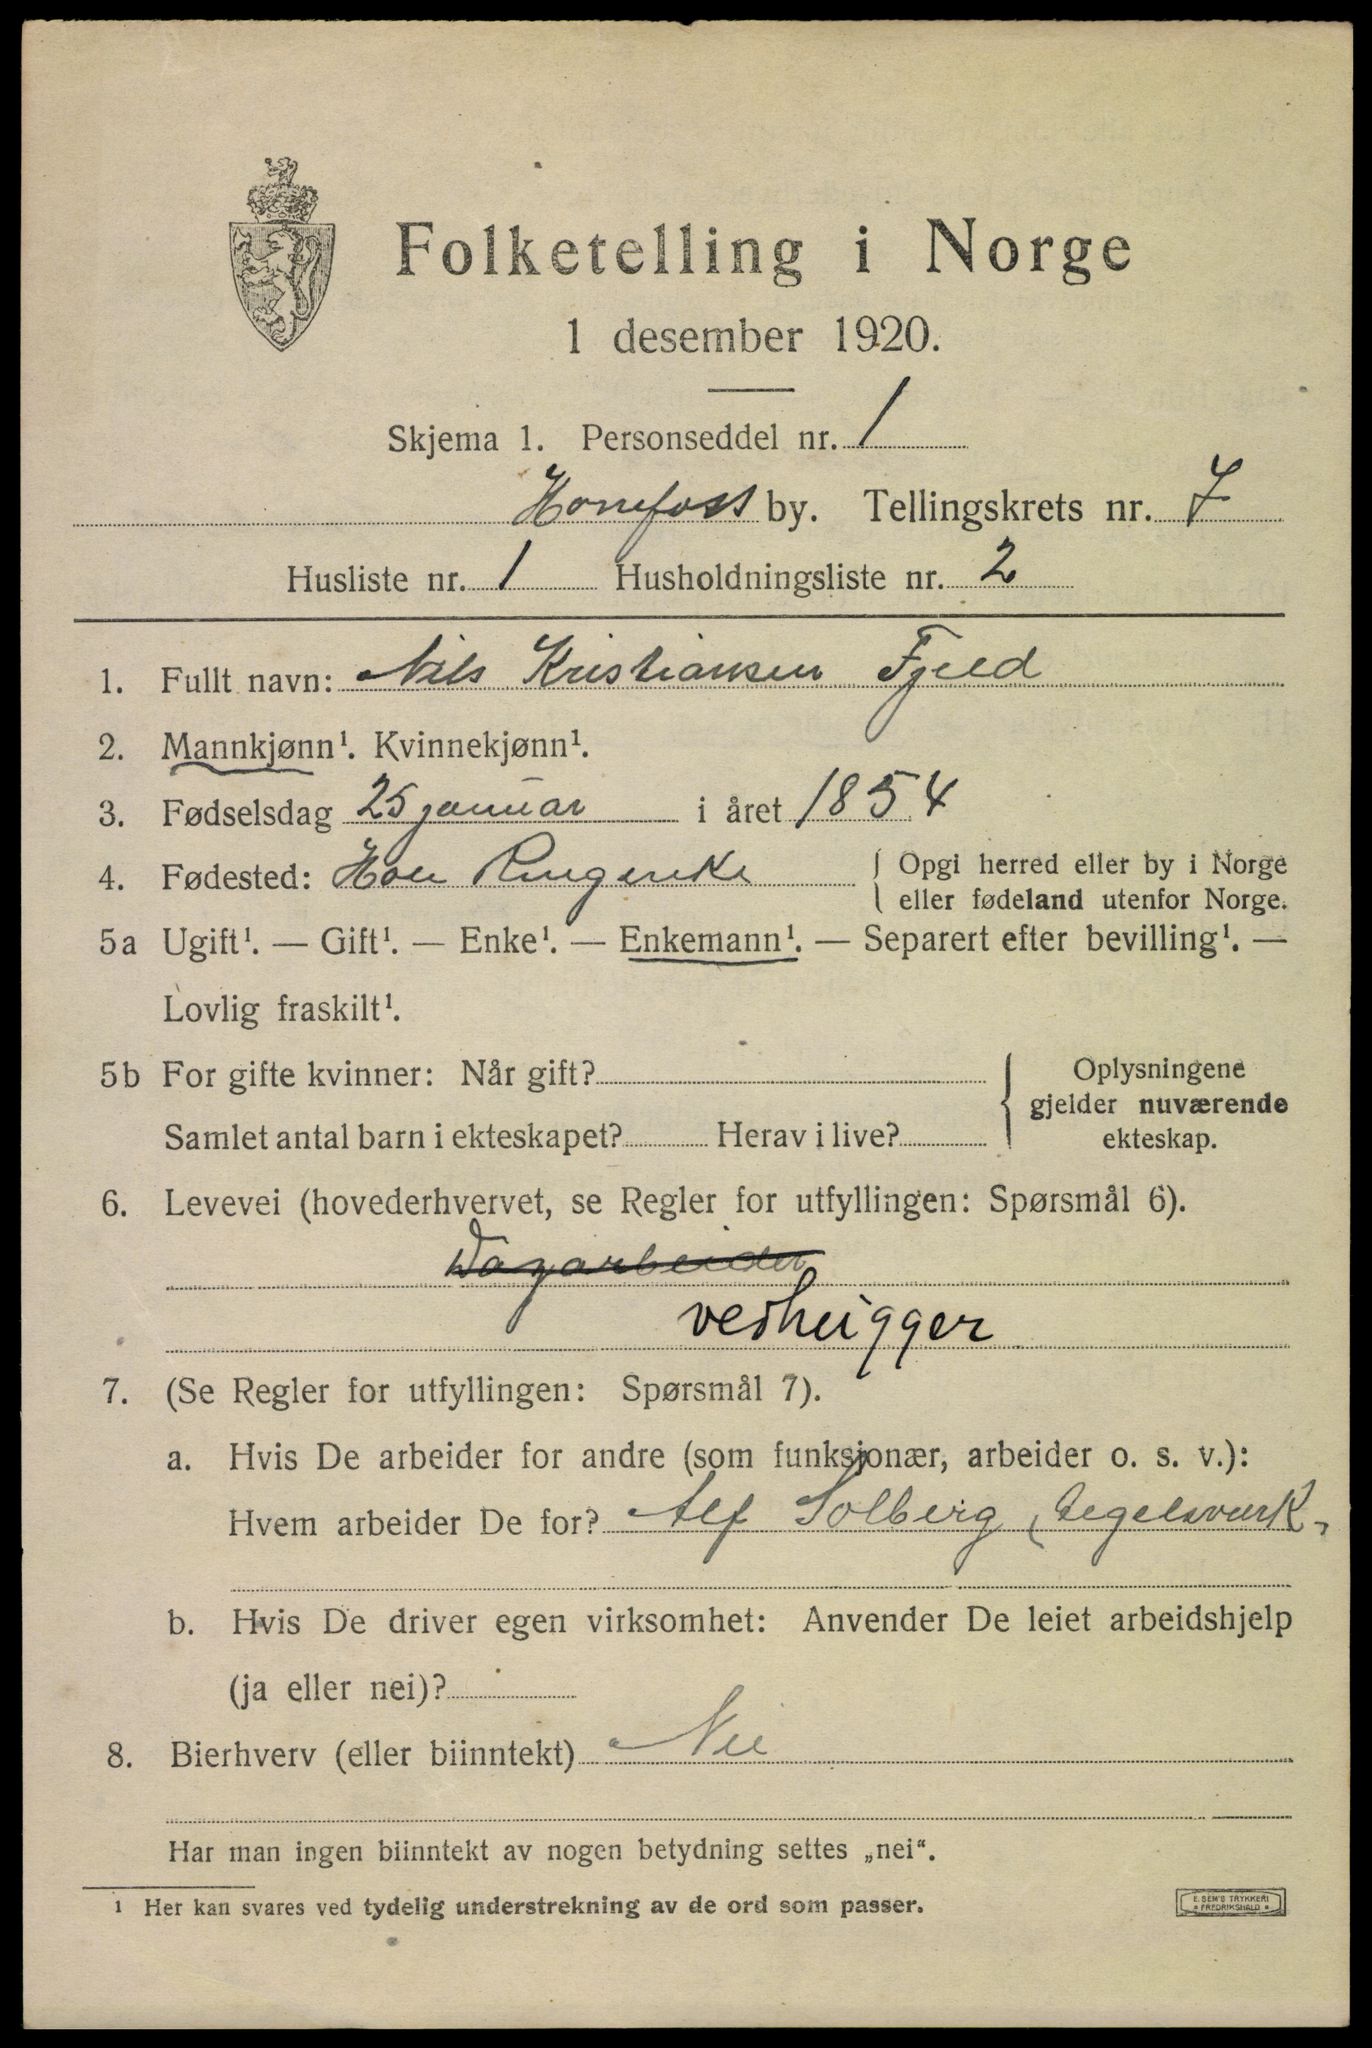 Folketelling i Norge
1 desember 1920.
Skjema 1. Personseddel nr. 1
Honefoss by. Tellingskrets nr. 7
Husliste nr. 1 Husholdningsliste nr. 2
1. Fullt navn: Nils Kristiansen Fjeld
2. Mannkjønn¹. Kvinnekjønn¹.
3. Fødselsdag 25 januar i året 1854
4. Fødested: Hole Ringerike { Opgi herred eller by i Norge
eller fødeland utenfor Norge.
5a Ugift¹. — Gift¹. — Enke¹. — Enkemann¹. — Separert efter bevilling¹. —
Lovlig fraskilt¹.
5b For gifte kvinner: Når gift?
Samlet antal barn i ekteskapet? Herav i live?
{ Oplysningene
gjelder nuværende
ekteskap.
6. Levevei (hovederhvervet, se Regler for utfyllingen: Spørsmål 6).
Dagarbeider
vedhugger
7. (Se Regler for utfyllingen: Spørsmål 7).
a. Hvis De arbeider for andre (som funksjonær, arbeider o. s. v.):
Hvem arbeider De for? Alf Solberg, Tegelsverk,
b. Hvis De driver egen virksomhet: Anvender De leiet arbeidshjelp
(ja eller nei)?
8. Bierhverv (eller biinntekt) Nei
Har man ingen biinntekt av nogen betydning settes „nei“.
¹ Her kan svares ved tydelig understrekning av de ord som passer.
E. SEM'S TRYKKERI
* FREDRIKSHALD *